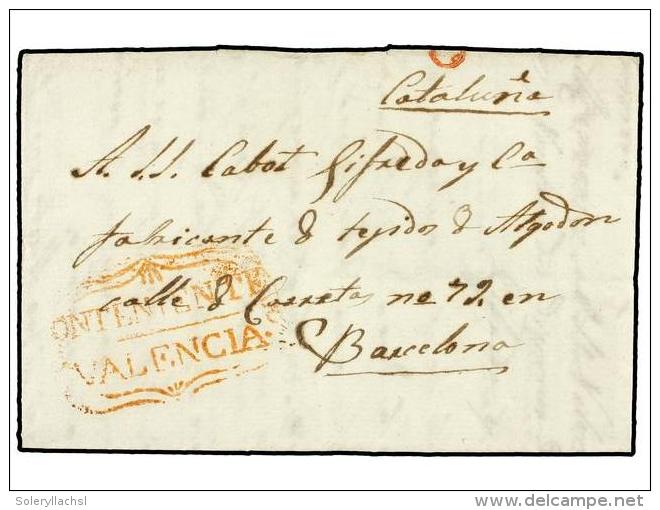 Cataluña
A. S.S. Cabot Gifreda y Ca
fabricante d tejidos d Algodon
calle d Carretas no 72. en
Barcelona
ONTENIENTE
VALENCIA.
Soleryllachsl
delcampe.net